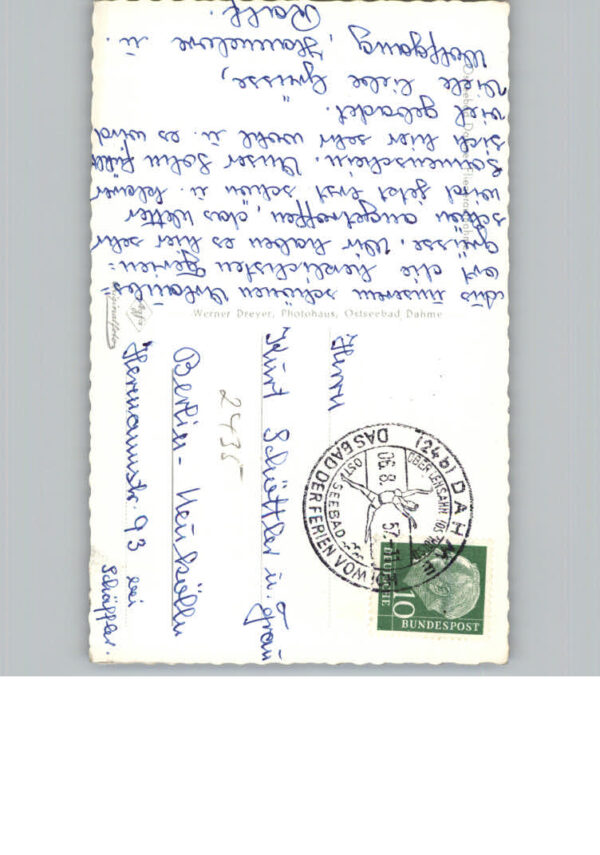 Aus unserem schönen Urlaubs-
ort die herzlichsten Ferien-
grüsse. Wir haben es hier sehr
schön angetroffen, das Wetter
wird jetzt erst schön u.
Sonnenschein. Unser Sohn fühlt
sich hier sehr wohl u. es wird
viel gebadet.
Viele liebe Grüsse,
Wolfgang, Hannelore u.
Ralf.
Werner Dreyer, Photohaus, Ostseebad Dahme
Originalfoto
Herrn
Kurt Schöttler u. Frau
Berlin-Neukölln
Hermannstr. 93 bei
Schäffler.
2435
(24b) DAHME
ÜBER LENSAHN
06.8.57
OSTSEEBAD
DAS BAD DER FERIEN VOM ICH
10
DEUTSCHE
BUNDESPOST